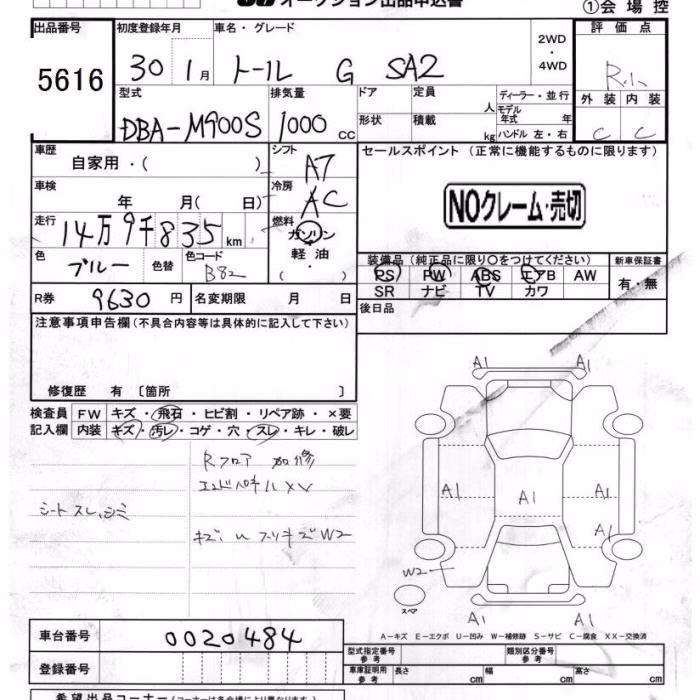 オークション出品申込書
①会場控
出品番号 初度登録年月 車名・グレード 2WD・4WD 評価点
5616 30 1月 トール G SA2 R
型式 排気量 ドア 定員 人 ディーラー・並行 外装 内装
DBA-M900S 1000cc 形状 積載 kg モデル年式 年 ハンドル 左・右 C C
車歴 自家用・( ) シフト A7 セールスポイント (正常に機能するものに限ります)
車検 年 月( 日) 冷房 AC NOクレーム・売切
走行 14万9千835km 燃料 ガソリン・軽油・( )
装備品 (純正品に限り○をつけてください) 新車保証書
色 ブルー 色替 色コード B82 PS PW ABS エアB AW 有・無
SR ナビ TV カワ
R券 9630円 名変期限 月 日 後日品
注意事項申告欄(不具合内容等は具体的に記入して下さい)
修復歴 有 〔箇所 〕
検査員 FW キズ・飛石・ヒビ割・リペア跡・×要
記入欄 内装 キズ・汚レ・コゲ・穴・スレ・キレ・破レ
Rフロア 加修
シートスレ、シミ
W2
A1 A1
A1 A1 A1
A1
W2
スペア
A1
A-キズ E-エクボ U-凹み W-補修跡 S-サビ C-腐食 XX-交換済
車台番号 0020484
型式指定番号 参考 類別区分番号 参考
登録番号 車庫証明用 参考 長さ cm 幅 cm 高さ cm
希望出品コーナー